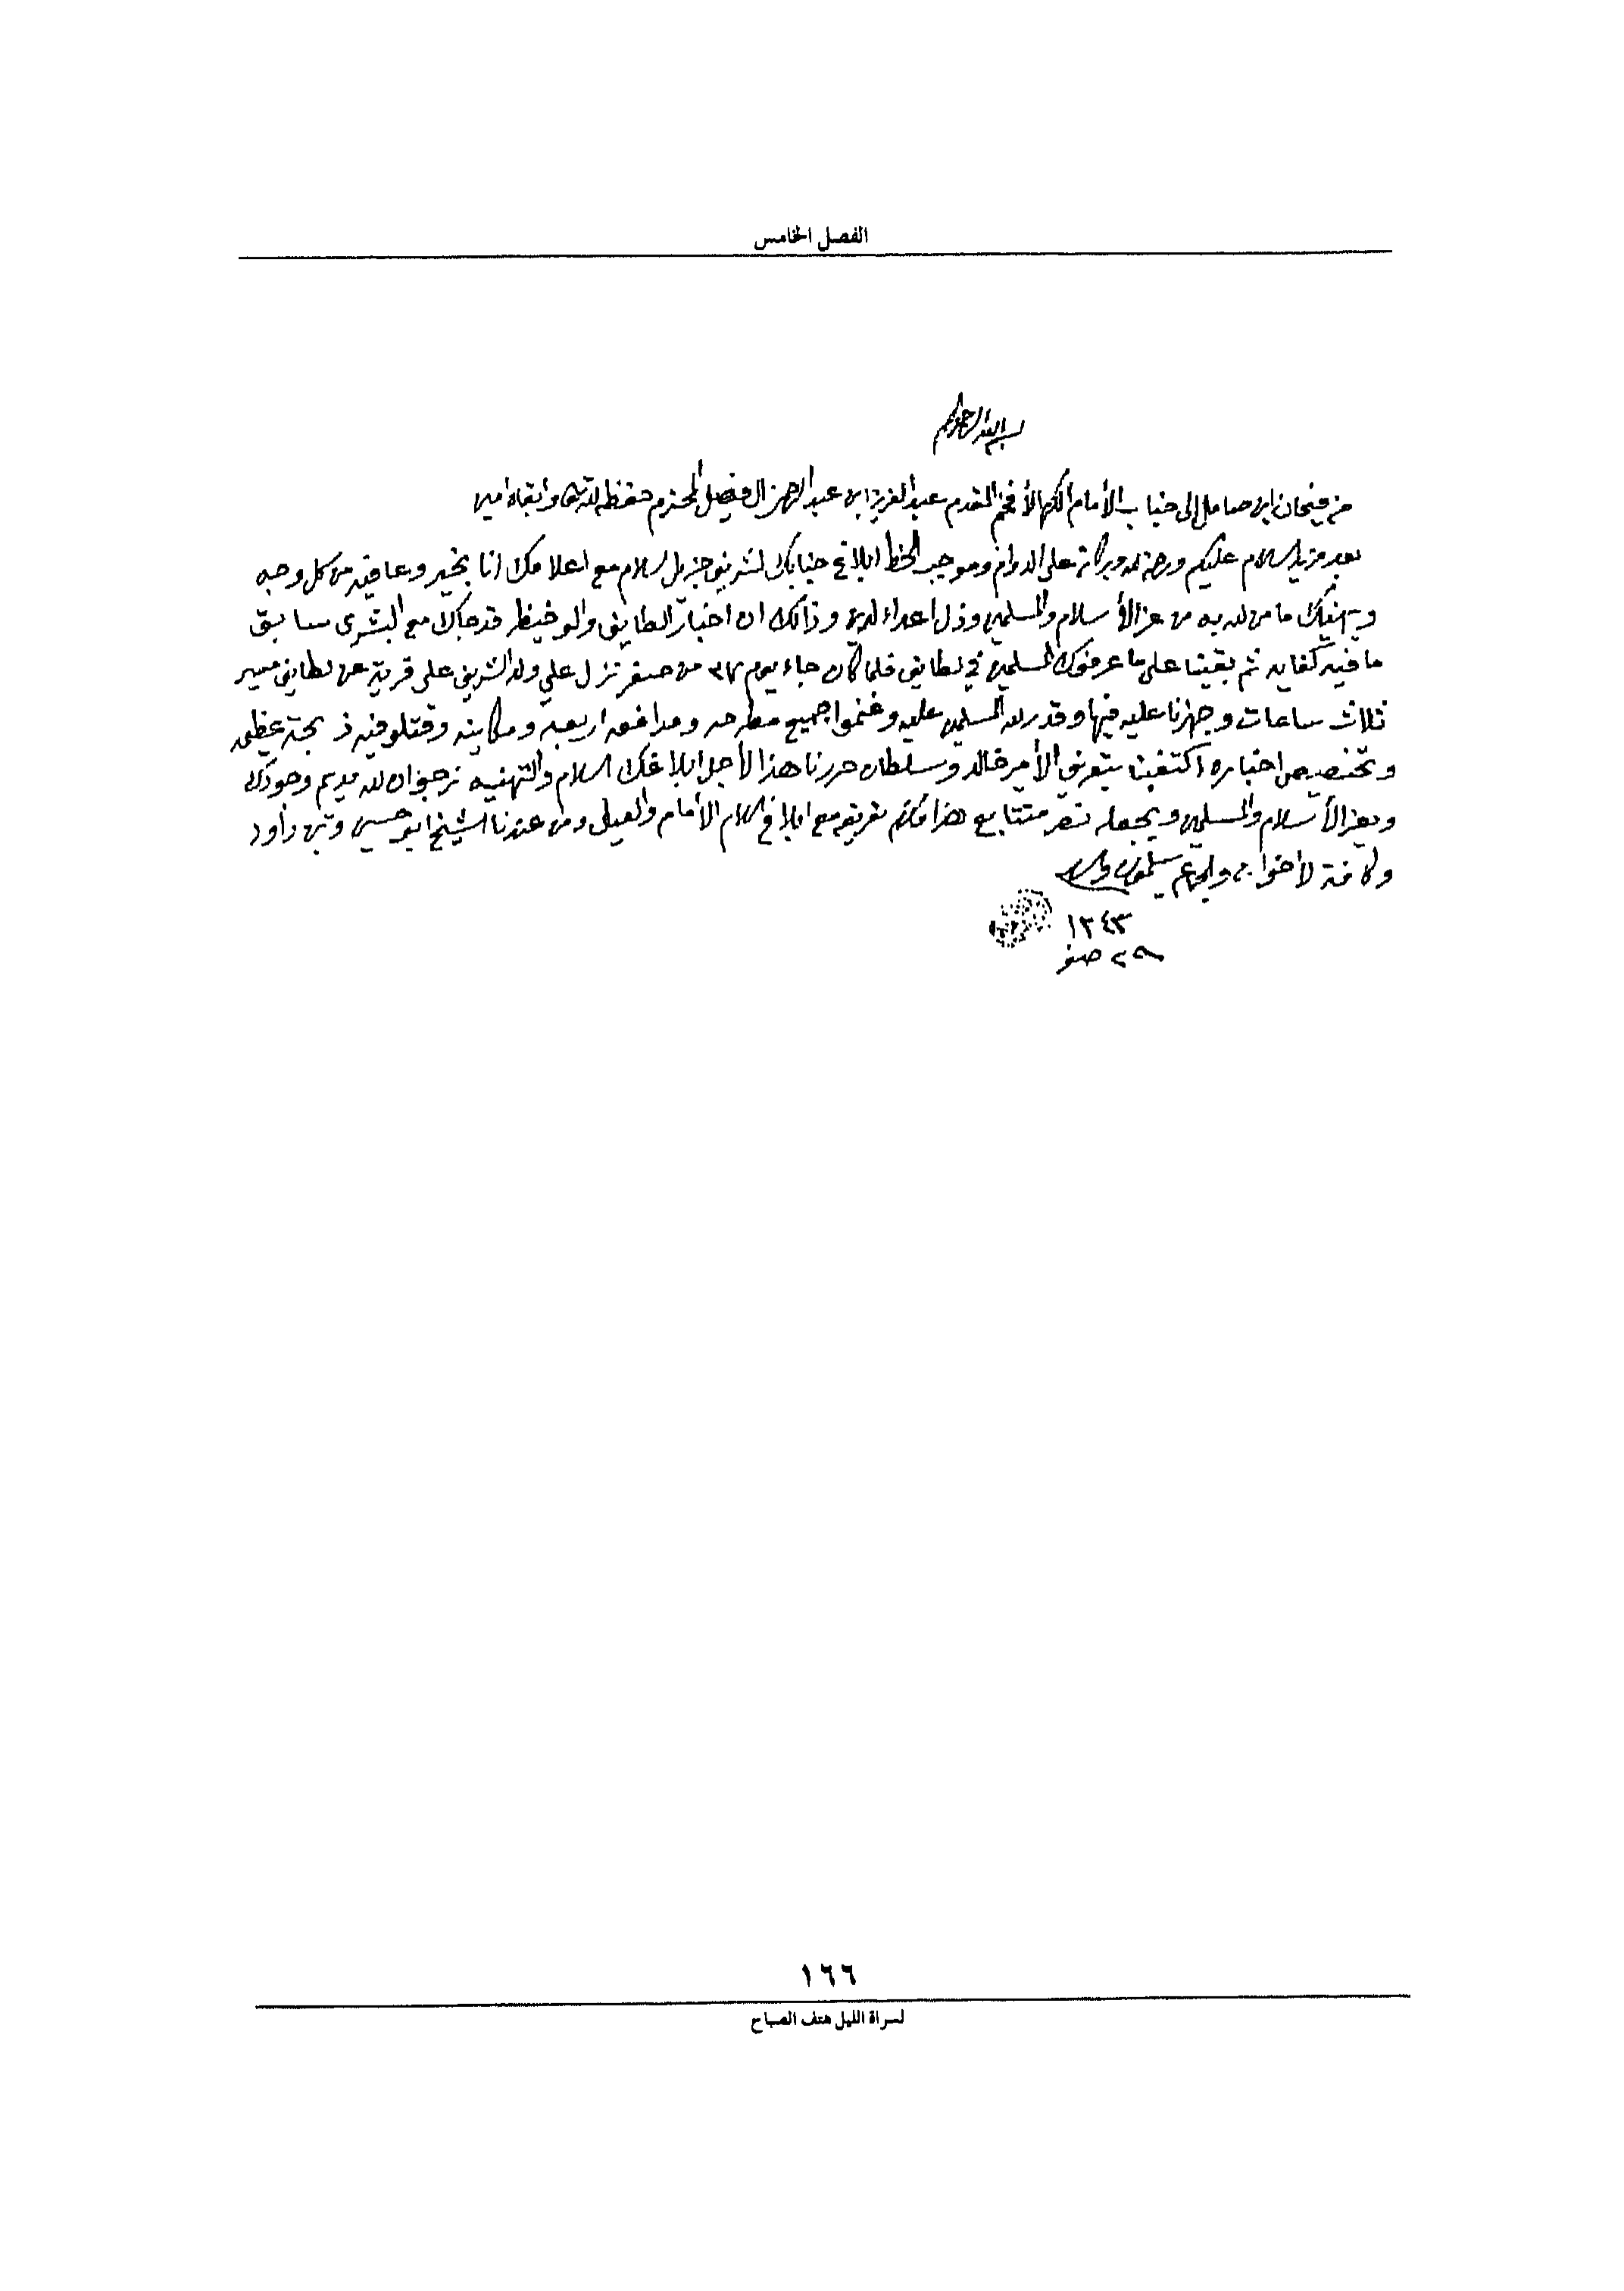 الفصل الخامس
بسم الله الرحمن الرحيم
من فيحان ابن صامل إلى جناب الأمام المكرم الأفخم المقدم عبد العزيز ابن عبد الرحمن ال فيصل المحترم حفظه الله تعالى وابقاه امين
بعد مزيد السلام عليكم ورحمة الله وبركاته على الدوام وموجب الخط ابلاغ جنابك الشريف جزيل السلام مع اعلامك انا بخير وعافيه من كل وجه
ويهنيك ما من الله به من عز الأسلام والمسلمين وذل اعداء الدين وذالك ان اخبار الطايف والو قد جاك مع البشرى سابق
ما فيه كفايه ثم بقينا على ما عرفوك المسلمين في الطايف فلما كان جاء يوم ٢٧ من صفر نزل علي ولد الشريف على قرية عن الطايف مسير
ثلاث ساعات وجهزنا عليه فيها وقدر الله المسلمين عليه وغنموا جميع مطرحه ومدافعه اربعه ومكاينه وقتلو فيه ذبحة عظمى
وتخصيص اخباره اكتفينا بتعريف الأمير خالد وسلطان حررنا هذا لأجل ابلاغك السلام والتهنيه نرجو ان الله يديم وجودك
ويعز الأسلام والمسلمين ويجعله نصر متتابع هذا مالزم تعريفه مع ابلاغ السلام الأمام والعيال ومن عندنا الشيخ ابو حسين وبن داود
وكافة الأخوان والجماعه يسلمون والسلام
١٣٤٣
٢٩ صفر
١٦٦
لسراة الليل هتف الصباح